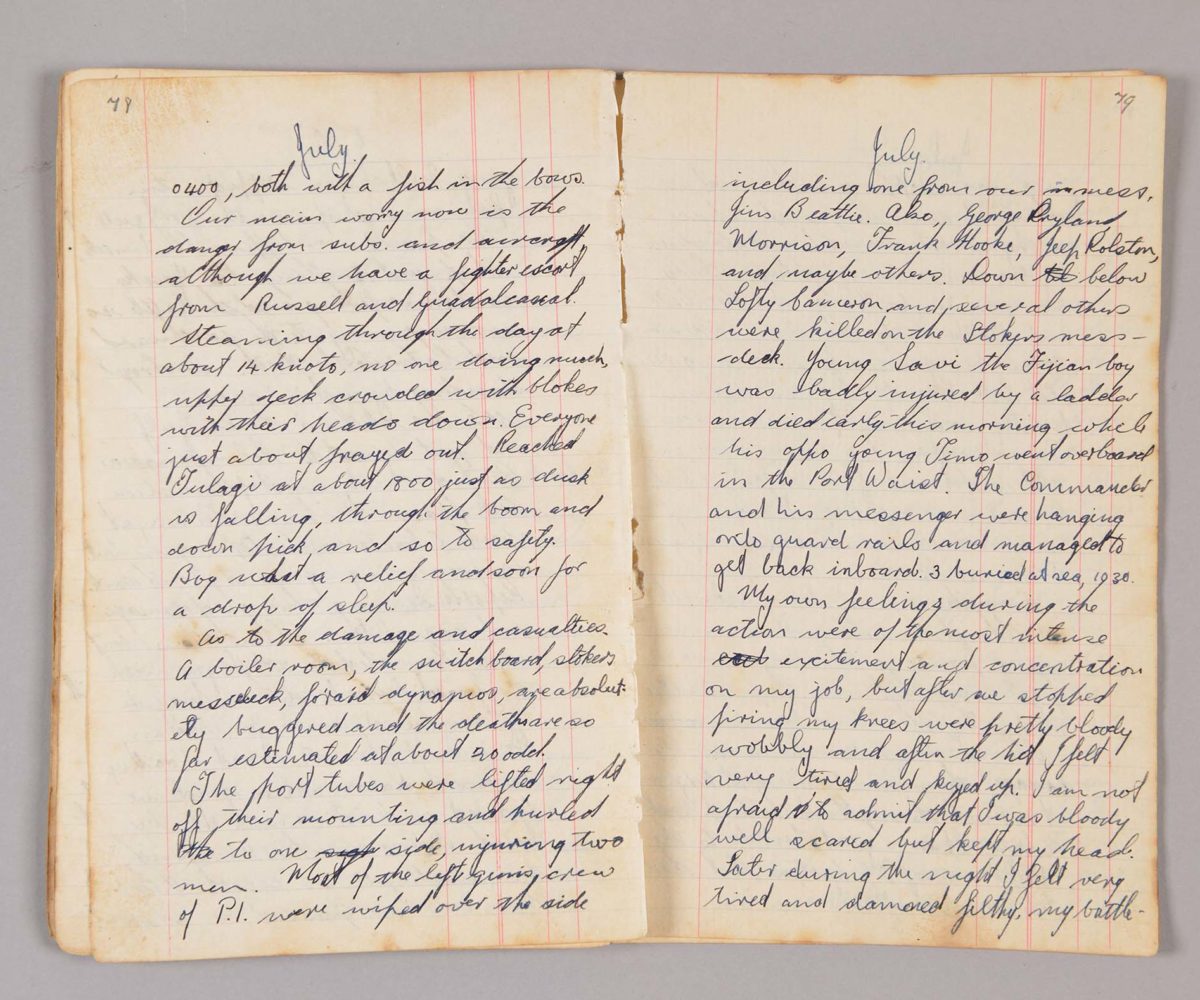 78
July.
0400, both with a fish in the bows.
Our main worry now is the
danger from subs. and aircraft,
although we have a fighter escort,
from Russell and Guadalcanal.
Steaming through the day at
about 14 knots, no one doing much,
upper deck crowded with blokes
with their heads down. Everyone
just about frazed out. Reached
Tulagi at about 1800 just as dusk
is falling, through the boom and
down pick, and so to safety.
Boy what a relief and soon for
a drop of sleep.
As to the damage and casualties.
A boiler room, the switchboard, stokers
messdeck, forard dynamos, are absolut-
ely buggered and the death are so
far estimated at about 20 odd.
The port tubes were lifted right
off their mounting and hurled
the to one side, injuring two
men. Most of the left guns crew
of P.1. were wiped over the side
79
July.
including one from our mess,
Jim Beattie. Also, George Ryland,
Morrison, Frank Hooke, Jeep Rolston,
and maybe others. Down below
Lofty Cameron and several others
were killed on the Stokers mess-
deck. Young Savi the Fijian boy
was badly injured by a ladder
and died early this morning while
his oppo young Timo went overboard
in the Port Waist. The Commander
and his messenger were hanging
onto guard rails and managed to
get back inboard. 3 buried at sea, 1930.
My own feelings during the
action were of the most intense
excitement and concentration
on my job, but after we stopped
firing my knees were pretty bloody
wobbly and after the hit I felt
very tired and keyed up. I am not
afraid to admit that I was bloody
well scared but kept my head.
Later during the night I felt very
tired and damned filthy, my battle-